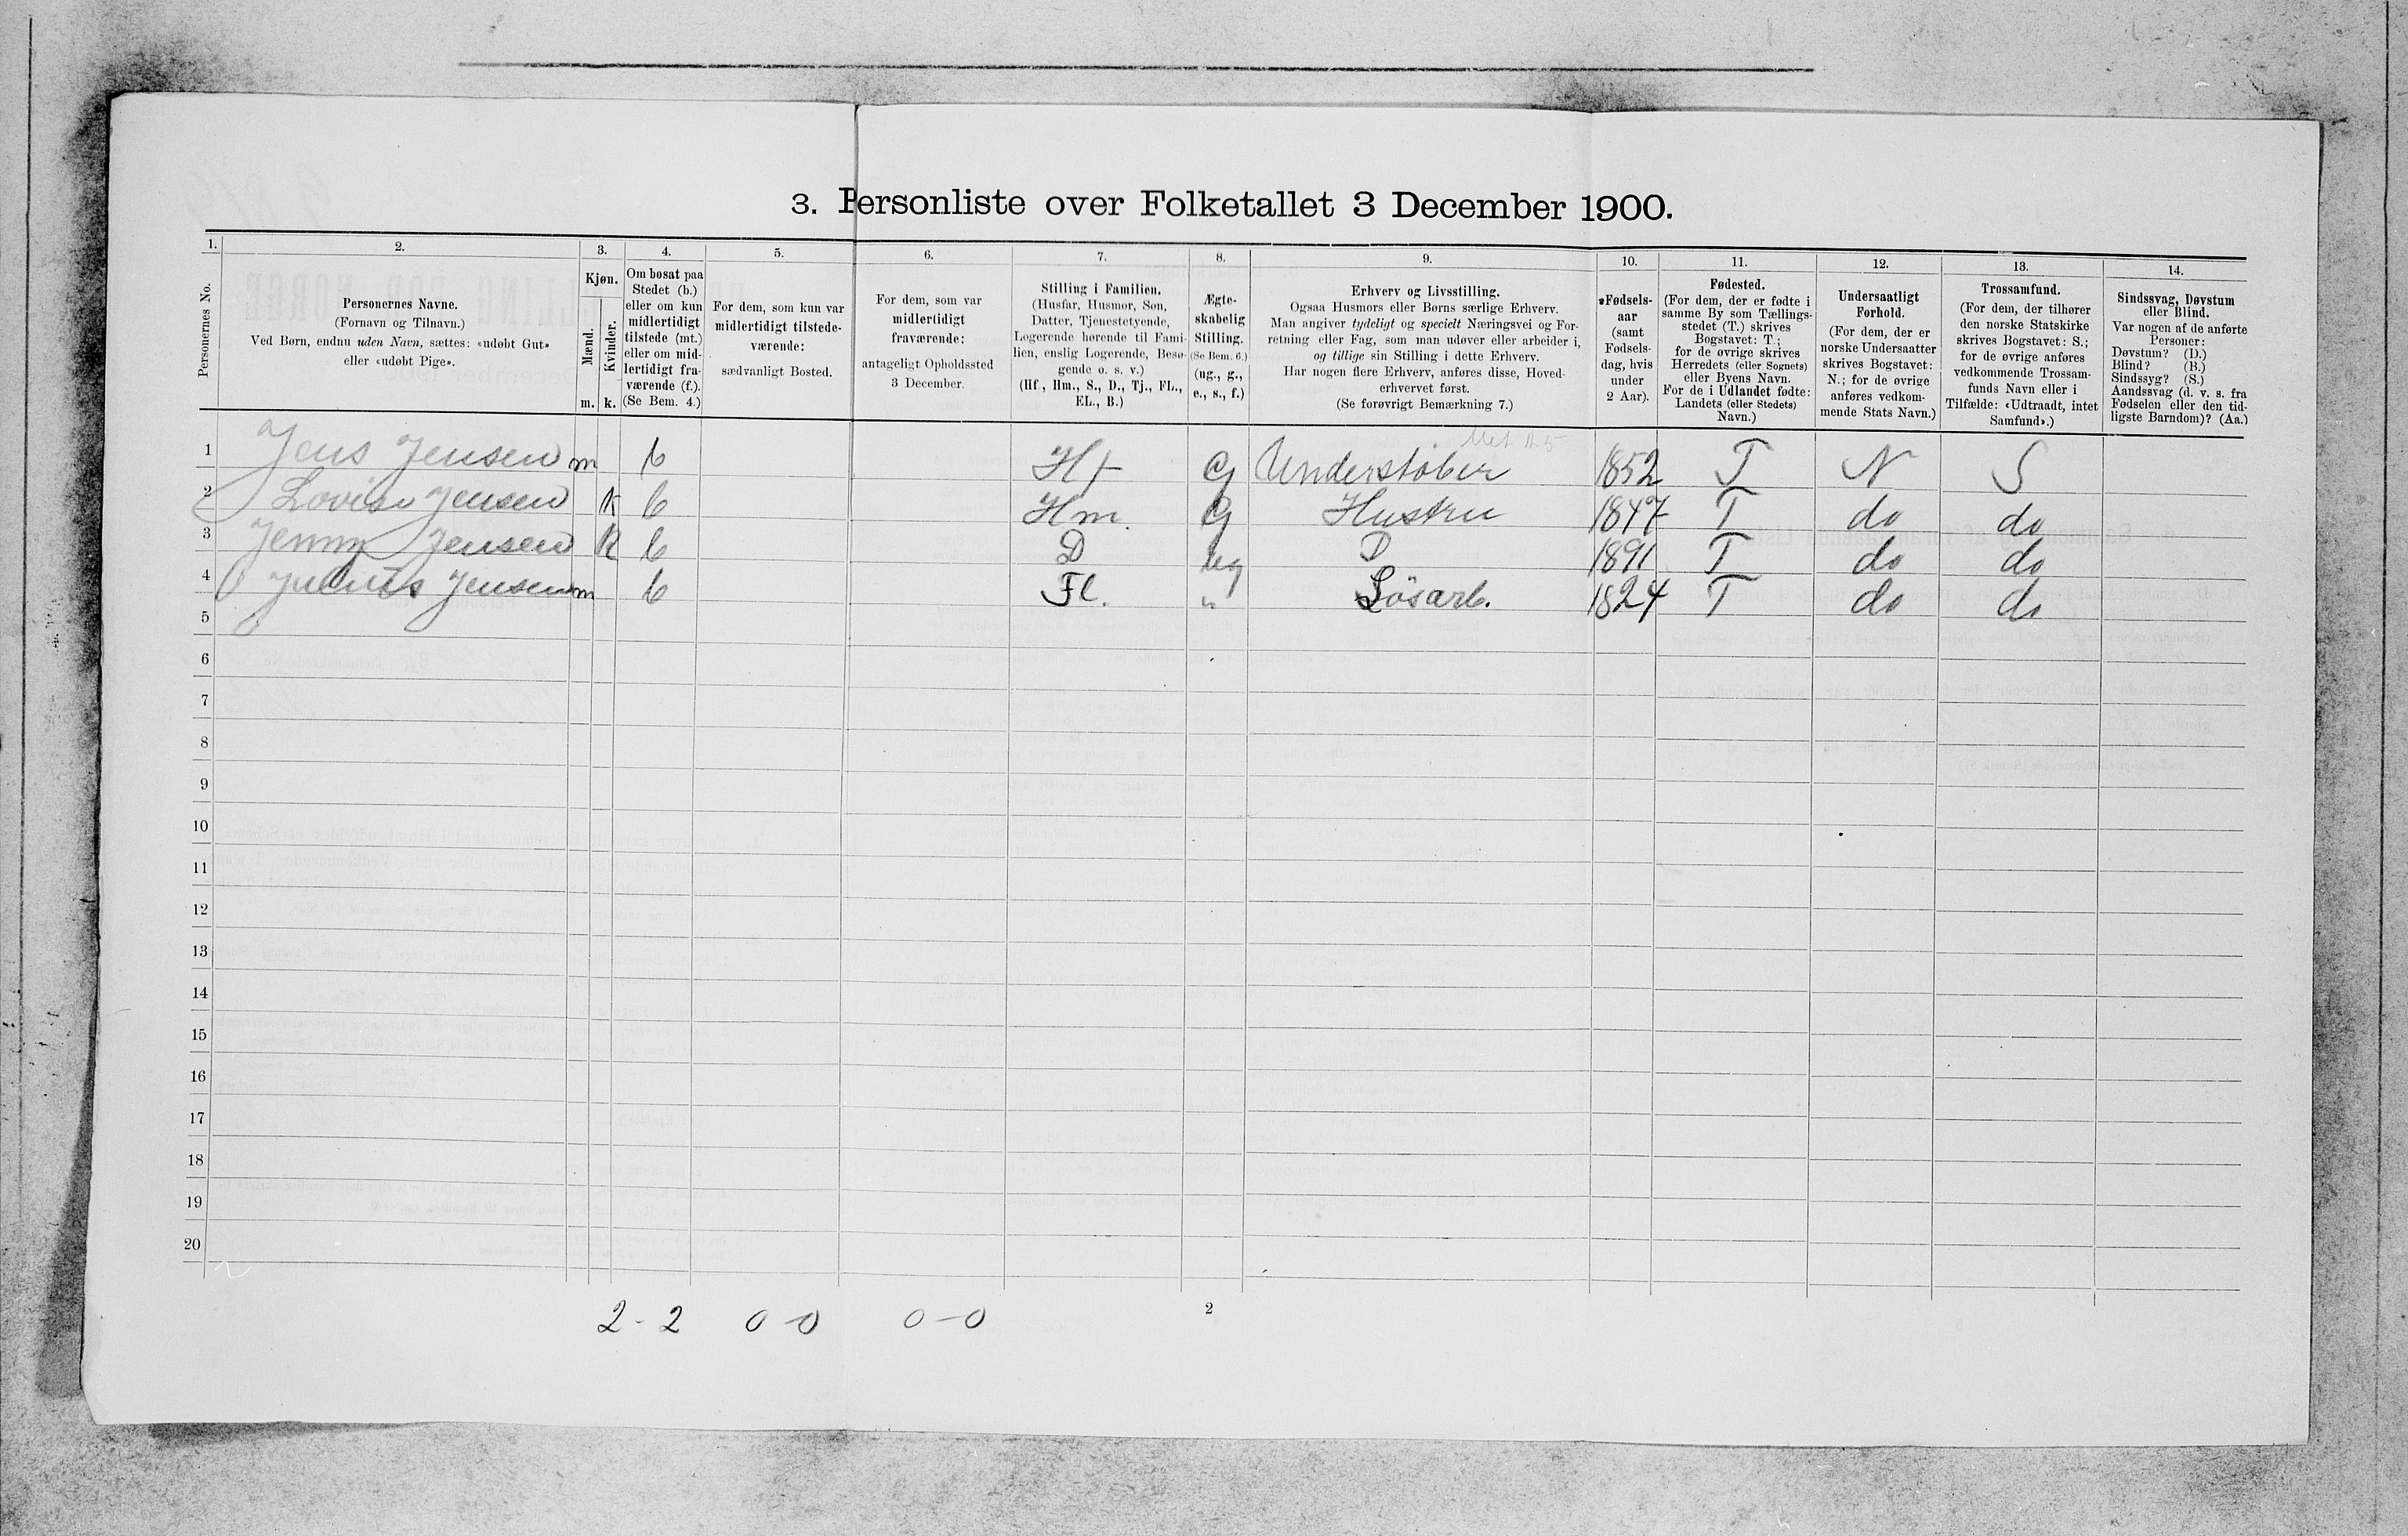 3. Personliste over Folketallet 3 December 1900.
1. 2. 3. 4. 5. 6. 7. 8. 9. 10. 11. 12. 13. 14.
Personernes No.
Personernes Navne.
(Fornavn og Tilnavn.)
Ved Børn, endnu uden Navn, sættes: «udøbt Gut»
eller «udøbt Pige».
Kjøn.
Mænd.
m.
Kvinder.
k.
Om bosat paa
Stedet (b.)
eller om kun
midlertidigt
tilstede (mt.)
eller om mid-
lertidigt fra-
værende (f.).
(Se Bem. 4.)
For dem, som kun var
midlertidigt tilstede-
værende:
sædvanligt Bosted.
For dem, som var
midlertidigt
fraværende:
antageligt Opholdssted
3 December.
Stilling i Familien.
(Husfar, Husmor, Søn,
Datter, Tjenestetyende,
Logerende hørende til Fami-
lien, enslig Logerende, Besø-
gende o. s. v.)
(Hf., Hm., S., D., Tj., FL.,
EL., B.)
Ægte-
skabelig
Stilling.
(Se Bem. 6.)
(ug., g.,
e., s., f.)
Erhverv og Livsstilling.
Ogsaa Husmors eller Børns særlige Erhverv.
Man angiver tydeligt og specielt Næringsvei og For-
retning eller Fag, som man udøver eller arbeider i,
og tillige sin Stilling i dette Erhverv.
Har nogen flere Erhverv, anføres disse, Hoved-
erhvervet først.
(Se forøvrigt Bemærkning 7.)
Fødsels-
aar
(samt
Fødsels-
dag, hvis
under
2 Aar).
Fødested.
(For dem, der er fødte i
samme By som Tællings-
stedet (T.) skrives
Bogstavet: T.;
for de øvrige skrives
Herredets (eller Sognets)
eller Byens Navn.
For de i Udlandet fødte:
Landets (eller Stedets)
Navn.)
Undersaatligt
Forhold.
(For dem, der er
norske Undersaatter
skrives Bogstavet:
N.; for de øvrige
anføres vedkom-
mende Stats Navn.)
Trossamfund.
(For dem, der tilhører
den norske Statskirke
skrives Bogstavet: S.;
for de øvrige anføres
vedkommende Trossam-
funds Navn eller i
Tilfælde: «Udtraadt, intet
Samfund».)
Sindssvag, Døvstum
eller Blind.
Var nogen af de anførte
Personer:
Døvstum? (D.)
Blind? (B.)
Sindssyg? (S.)
Aandssvag (d. v. s. fra
Fødselen eller den tid-
ligste Barndom)? (Aa.)
1 Jens Jensen m b Hf G Understøber 1852 T N S
2 Lovise Jensen K b Hm. G Hustru 1847 T do do
3 Jenny Jensen K b D ug D 1891 T do do
4 Julius Jensen m b Fl. " Løsarb. 1824 T do do
5
6
7
8
9
10
11
12
13
14
15
16
17
18
19
20
2 - 2 0 - 0 0 - 0
2